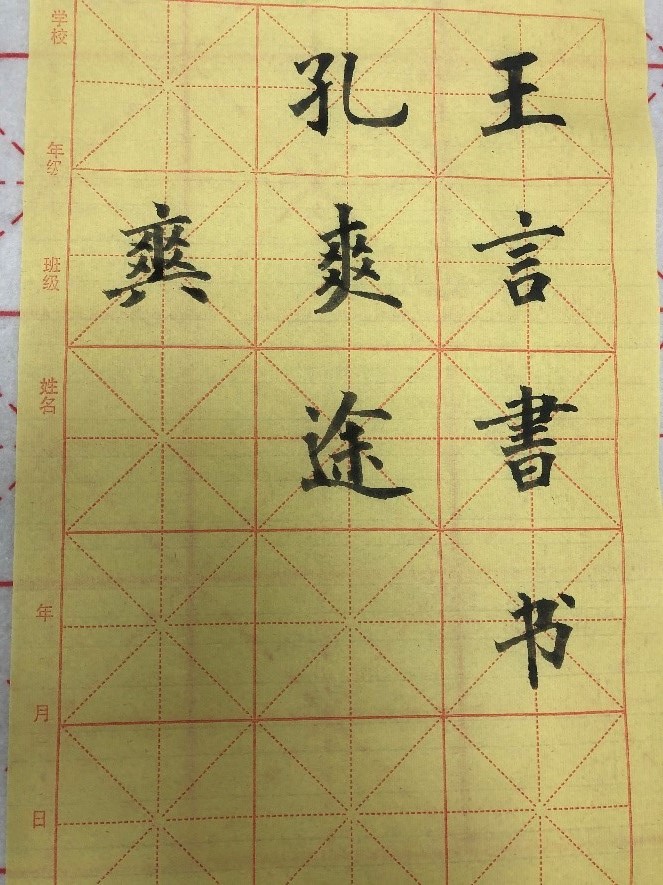 王言書书
孔爽途
学校 年级 班级 姓名 年 月 日